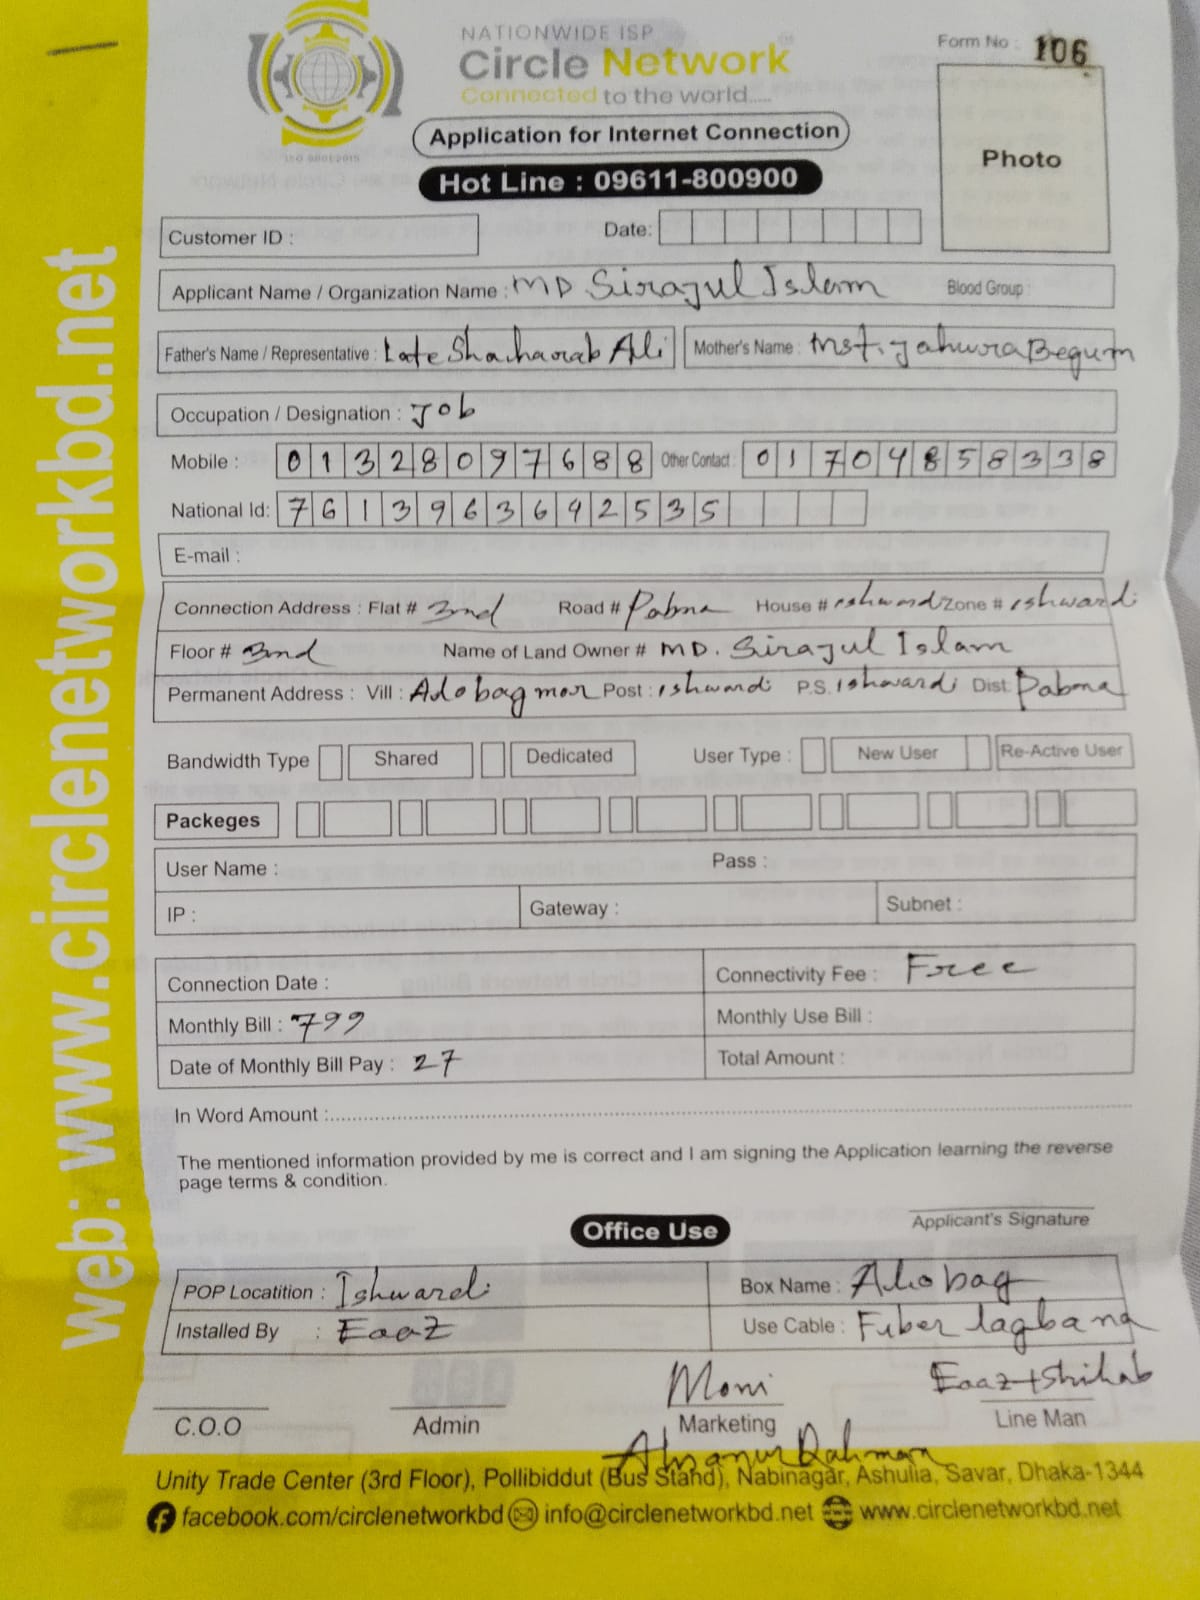 NATIONWIDE ISP
Circle Network
Connected to the world.....
Form No : 106
Application for Internet Connection
Photo
Hot Line : 09611-800900
Customer ID :
Date:
Applicant Name / Organization Name : MD Sirajul Islam Blood Group :
Father's Name / Representative : Late Shaharab Ali Mother's Name : Mst. Jahura Begum
Occupation / Designation : Job
Mobile : 01328097688 Other Contact : 01704858338
National Id: 7613963642535
E-mail :
Connection Address : Flat # 2nd Road # Pabna House # eshward Zone # ishwardi
Floor # 2nd Name of Land Owner # MD. Sirajul Islam
Permanent Address : Vill : Post : ishwardi P.S. ishwardi Dist: Pabna
Bandwidth Type Shared Dedicated User Type : New User Re-Active User
Packeges
User Name : Pass :
IP : Gateway : Subnet :
Connection Date : Connectivity Fee : Free
Monthly Bill : 799 Monthly Use Bill :
Date of Monthly Bill Pay : 27 Total Amount :
In Word Amount :
The mentioned information provided by me is correct and I am signing the Application learning the reverse
page terms & condition.
Applicant's Signature
Office Use
POP Locatition : Ishwardi Box Name :
Installed By : Eaaz Use Cable : Fiber lagbana
Moni Eaaz+Shihab
C.O.O Admin Marketing Line Man
Ahsanur Rahman
Unity Trade Center (3rd Floor), Pollibiddut (Bus Stand), Nabinagar, Ashulia, Savar, Dhaka-1344
facebook.com/circlenetworkbd info@circlenetworkbd.net www.circlenetworkbd.net
web: www.circlenetworkbd.net